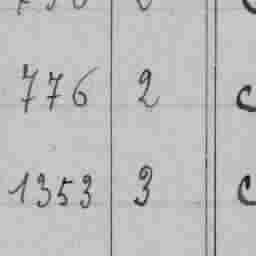 776 2
1353 3